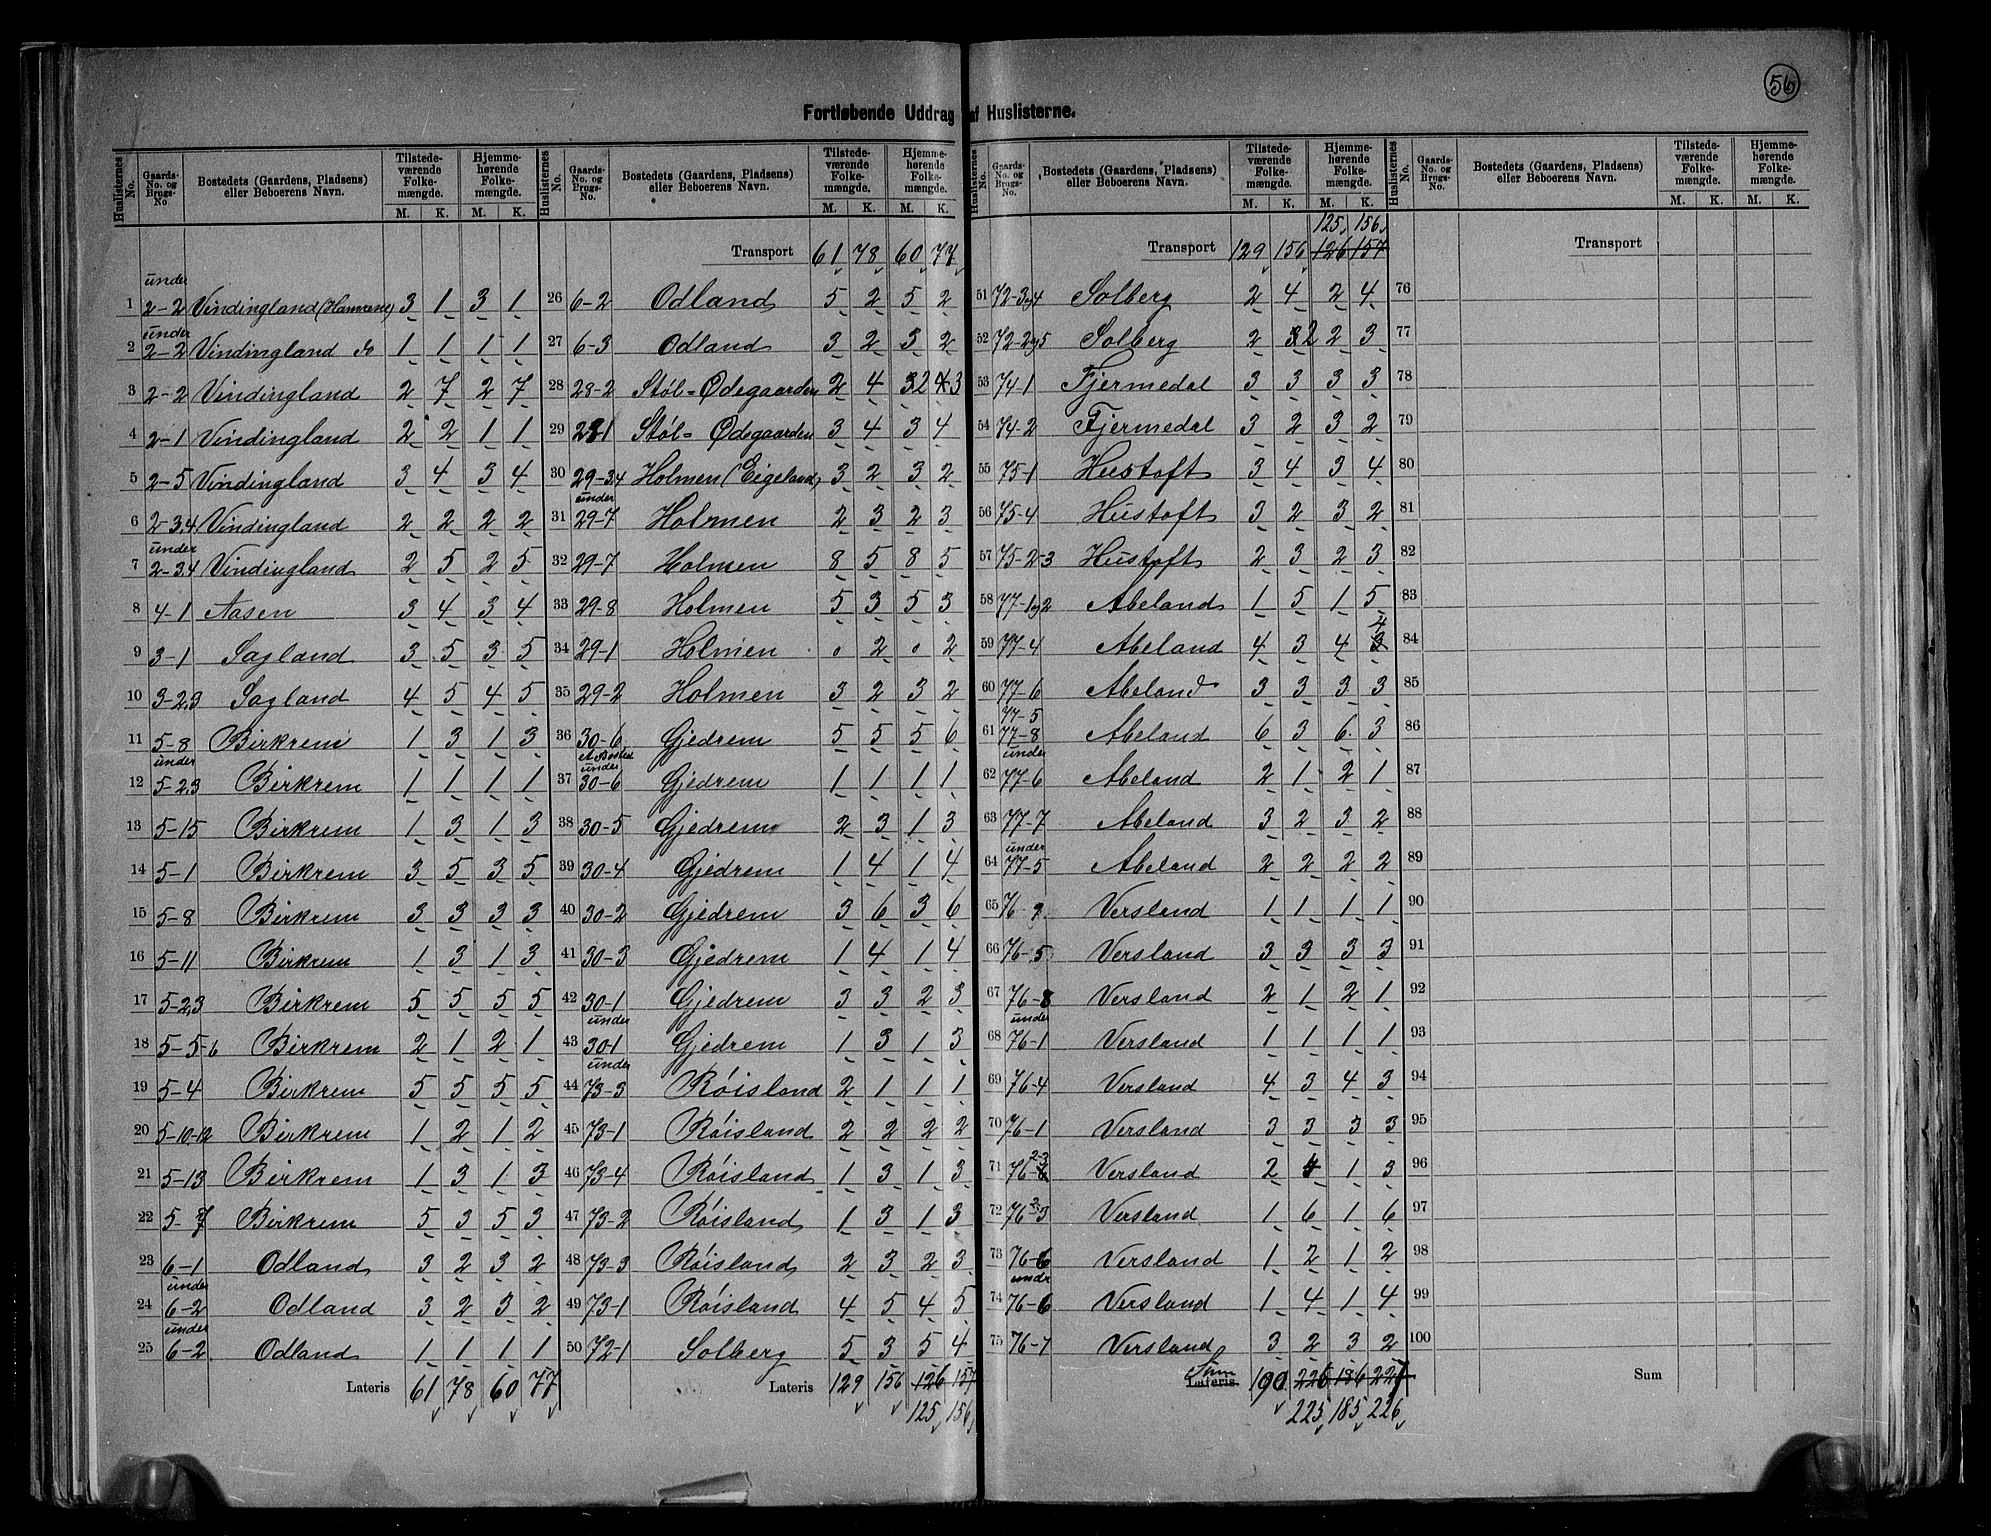 56
Fortløbende Uddrag af Huslisterne.
Huslisternes No. Gaards-No. og Brugs-No. Bostedets (Gaardens, Pladsens) eller Beboerens Navn. Tilstedeværende Folkemængde. M. K. Hjemmehørende Folkemængde. M. K.
1 under 2-2 Vindingland (Hamrene) 3 1 3 1
2 under 2-2 Vindingland do 1 1 1 1
3 2-2 Vindingland 2 7 2 7
4 2-1 Vindingland 2 2 1 1
5 2-5 Vindingland 3 4 3 4
6 2-3,4 Vindingland 2 2 2 2
7 under 2-3,4 Vindingland 2 5 2 5
8 4-1 Aasen 3 4 3 4
9 3-1 Sagland 3 5 3 5
10 3-2,3 Sagland 4 5 4 5
11 5-8 Birkrem 1 3 1 3
12 under 5-2,3 Birkrem 1 1 1 1
13 5-15 Birkrem 1 3 1 3
14 5-1 Birkrem 3 5 3 5
15 5-8 Birkrem 3 3 3 3
16 5-11 Birkrem 1 3 1 3
17 5-2,3 Birkrem 5 5 5 5
18 5-5-6 Birkrem 2 1 2 1
19 5-4 Birkrem 5 5 5 5
20 5-10-12 Birkrem 1 2 1 2
21 5-13 Birkrem 1 3 1 3
22 5-7 Birkrem 5 3 5 3
23 6-1 Odland 3 2 3 2
24 under 6-2 Odland 3 2 3 2
25 under 6-2 Odland 1 1 1 1
Lateris 61 78 60 77
Huslisternes No. Gaards-No. og Brugs-No. Bostedets (Gaardens, Pladsens) eller Beboerens Navn. Tilstedeværende Folkemængde. M. K. Hjemmehørende Folkemængde. M. K.
Transport 61 78 60 77
26 6-2 Odland 5 2 5 2
27 6-3 Odland 3 2 3 2
28 28-2 Støl-Ødegaarden 2 4 3 2 4 3
29 28-1 Støl-Ødegaarden 3 4 3 4
30 29-3,4 Holmen (Eigeland) 3 2 3 2
31 under 29-7 Holmen 2 3 2 3
32 29-7 Holmen 8 5 8 5
33 29-8 Holmen 5 3 5 3
34 29-1 Holmen 0 2 0 2
35 29-2 Holmen 3 2 3 2
36 30-6 Gjedrem 5 5 5 6
37 et Bosted under 30-6 Gjedrem 1 1 1 1
38 30-5 Gjedrem 2 3 1 3
39 30-4 Gjedrem 1 4 1 4
40 30-2 Gjedrem 3 6 3 6
41 30-3 Gjedrem 1 4 1 4
42 30-1 Gjedrem 3 3 2 3
43 under 30-1 Gjedrem 1 3 1 3
44 under 73-3 Røisland 2 1 1 1
45 73-1 Røisland 2 2 2 2
46 73-4 Røisland 1 3 1 3
47 73-2 Røisland 1 3 1 3
48 73-3 Røisland 2 3 2 3
49 73-1 Røisland 4 5 4 5
50 72-1 Solberg 5 3 5 4
Lateris 129 156 126 157
125 156
Huslisternes No. Gaards-No. og Brugs-No. Bostedets (Gaardens, Pladsens) eller Beboerens Navn. Tilstedeværende Folkemængde. M. K. Hjemmehørende Folkemængde. M. K.
125 156
Transport 129 156 126 157
51 72-3og4 Solberg 2 4 2 4
52 72-2og5 Solberg 2 3 2 2 3
53 74-1 Fjermedal 3 3 3 3
54 74-2 Fjermedal 3 2 3 2
55 75-1 Hustoft 3 4 3 4
56 75-4 Hustoft 3 2 3 2
57 75-2-3 Hustoft 2 3 2 3
58 77-1og2 Abeland 1 5 1 5
59 77-4 Abeland 4 3 4 3 4
60 77-6 Abeland 3 3 3 3
61 77-5 77-8 Abeland 6 3 6 3
62 under 77-6 Abeland 2 1 2 1
63 77-7 Abeland 3 2 3 2
64 under 77-5 Abeland 2 2 2 2
65 76- Versland 1 1 1 1
66 76-5 Versland 3 3 3 3
67 76-8 Versland 2 1 2 1
68 under 76-1 Versland 1 1 1 1
69 76-4 Versland 4 3 4 3
70 76-1 Versland 3 3 3 3
71 76-2-3 Versland 2 4 1 3
72 76-3 Versland 1 6 1 6
73 76-6 Versland 1 2 1 2
74 under 76-6 Versland 1 4 1 4
75 76-7 Versland 3 2 3 2
Lateris Sum 190 226 186 227
225 185 226
Huslisternes No. Gaards-No. og Brugs-No. Bostedets (Gaardens, Pladsens) eller Beboerens Navn. Tilstedeværende Folkemængde. M. K. Hjemmehørende Folkemængde. M. K.
Transport
76
77
78
79
80
81
82
83
84
85
86
87
88
89
90
91
92
93
94
95
96
97
98
99
100
Sum